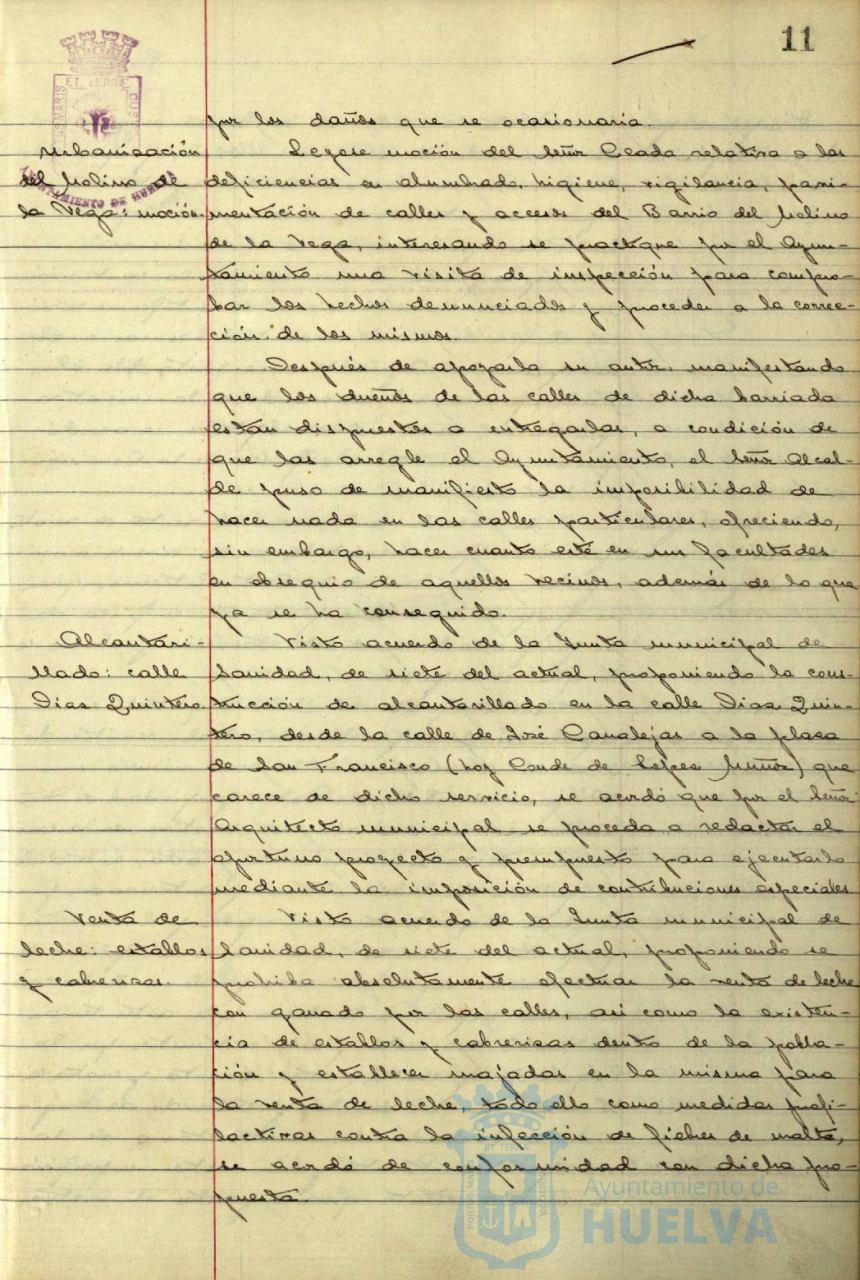 11
por los daños que se ocasionaria.
Urbanización
del Molino de
la Vega: moción.
Leyose moción del Señor Ceada relativa a las
deficiencias en alumbrado, higiene, vigilancia, pavi-
mentación de calles y accesos del Barrio del Molino
de la Vega, interesando se practique por el Ayun-
tamiento una visita de inspección para compro-
bar los hechos denunciados y proceder a la correc-
ción de los mismos.
Después de apoyarla su autor, manifestando
que los dueños de las calles de dicha barriada
están dispuestos a entregarlas, a condición de
que las arregle el Ayuntamiento, el Señor Alcal-
de puso de manifiesto la imposibilidad de
hacer nada en las calles particulares, ofreciendo,
sin embargo, hacer cuanto esté en sus facultades
en obsequio de aquellos vecinos, además de lo que
ya se ha conseguido.
Alcantari-
llado: calle
Dias Quintero.
Visto acuerdo de la Junta municipal de
Sanidad, de siete del actual, proponiendo la cons-
trucción de alcantarillado en la calle Dias Quin-
tero, desde la calle de José Canalejas a la plasa
de San Francisco (hoy Conde de Lopes Muñoz) que
carece de dicho servicio, se acordó que por el Señor
Arquitecto municipal se proceda a redactar el
oportuno proyecto y presupuesto para ejecutarlo
mediante la imposición de contribuciones especiales
Venta de
leche: establos
y cabrerizas.
Visto acuerdo de la Junta municipal de
Sanidad, de siete del actual, proponiendo se
prohiba absolutamente efectuar la venta de leche
con ganado por las calles, así como la existen-
cia de establos y cabrerisas dentro de la pobla-
ción y establecer majadas en la misma para
la venta de leche, todo ello como medidas profi-
lacticas contra la infección de fiebres de malta,
se acordó de conformidad con dicha pro-
puesta.
ET TERRAE
AYUNTAMIENTO DE HUELVA
Ayuntamiento de
HUELVA